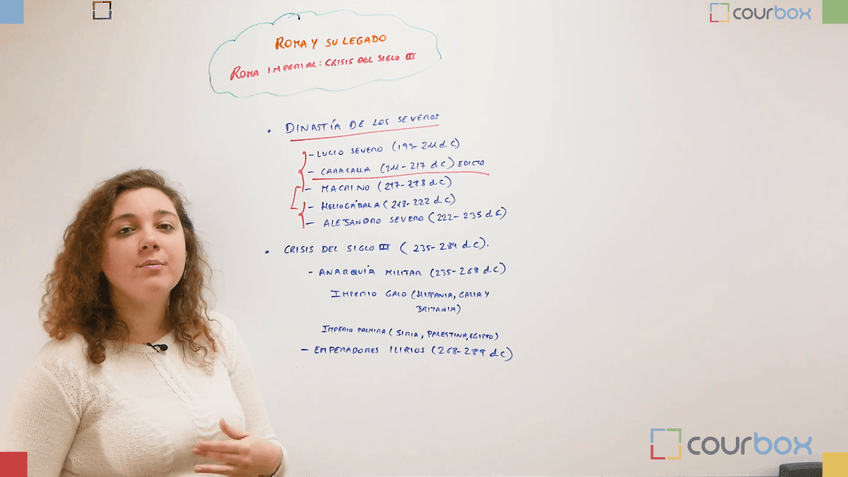 courbox
ROMA Y SU LEGADO
ROMA IMPERIAL: CRISIS DEL SIGLO III
• DINASTÍA DE LOS SEVEROS
- LUCIO SEVERO (193-211 d.C)
- CARACALLA (211-217 d.C) EDICTO
- MACRINO (217-218 d.C)
- HELIOGÁBALA (218-222 d.C)
- ALEJANDRO SEVERO (222-235 d.C)
• CRISIS DEL SIGLO III (235-284 d.C).
- ANARQUÍA MILITAR (235-268 d.C)
IMPERIO GALO (HISPANIA, GALIA Y
BRITANIA)
IMPERIO PALMIRA (SIRIA, PALESTINA, EGIPTO)
- EMPERADORES ILIRIOS (268-284 d.C)
courbox